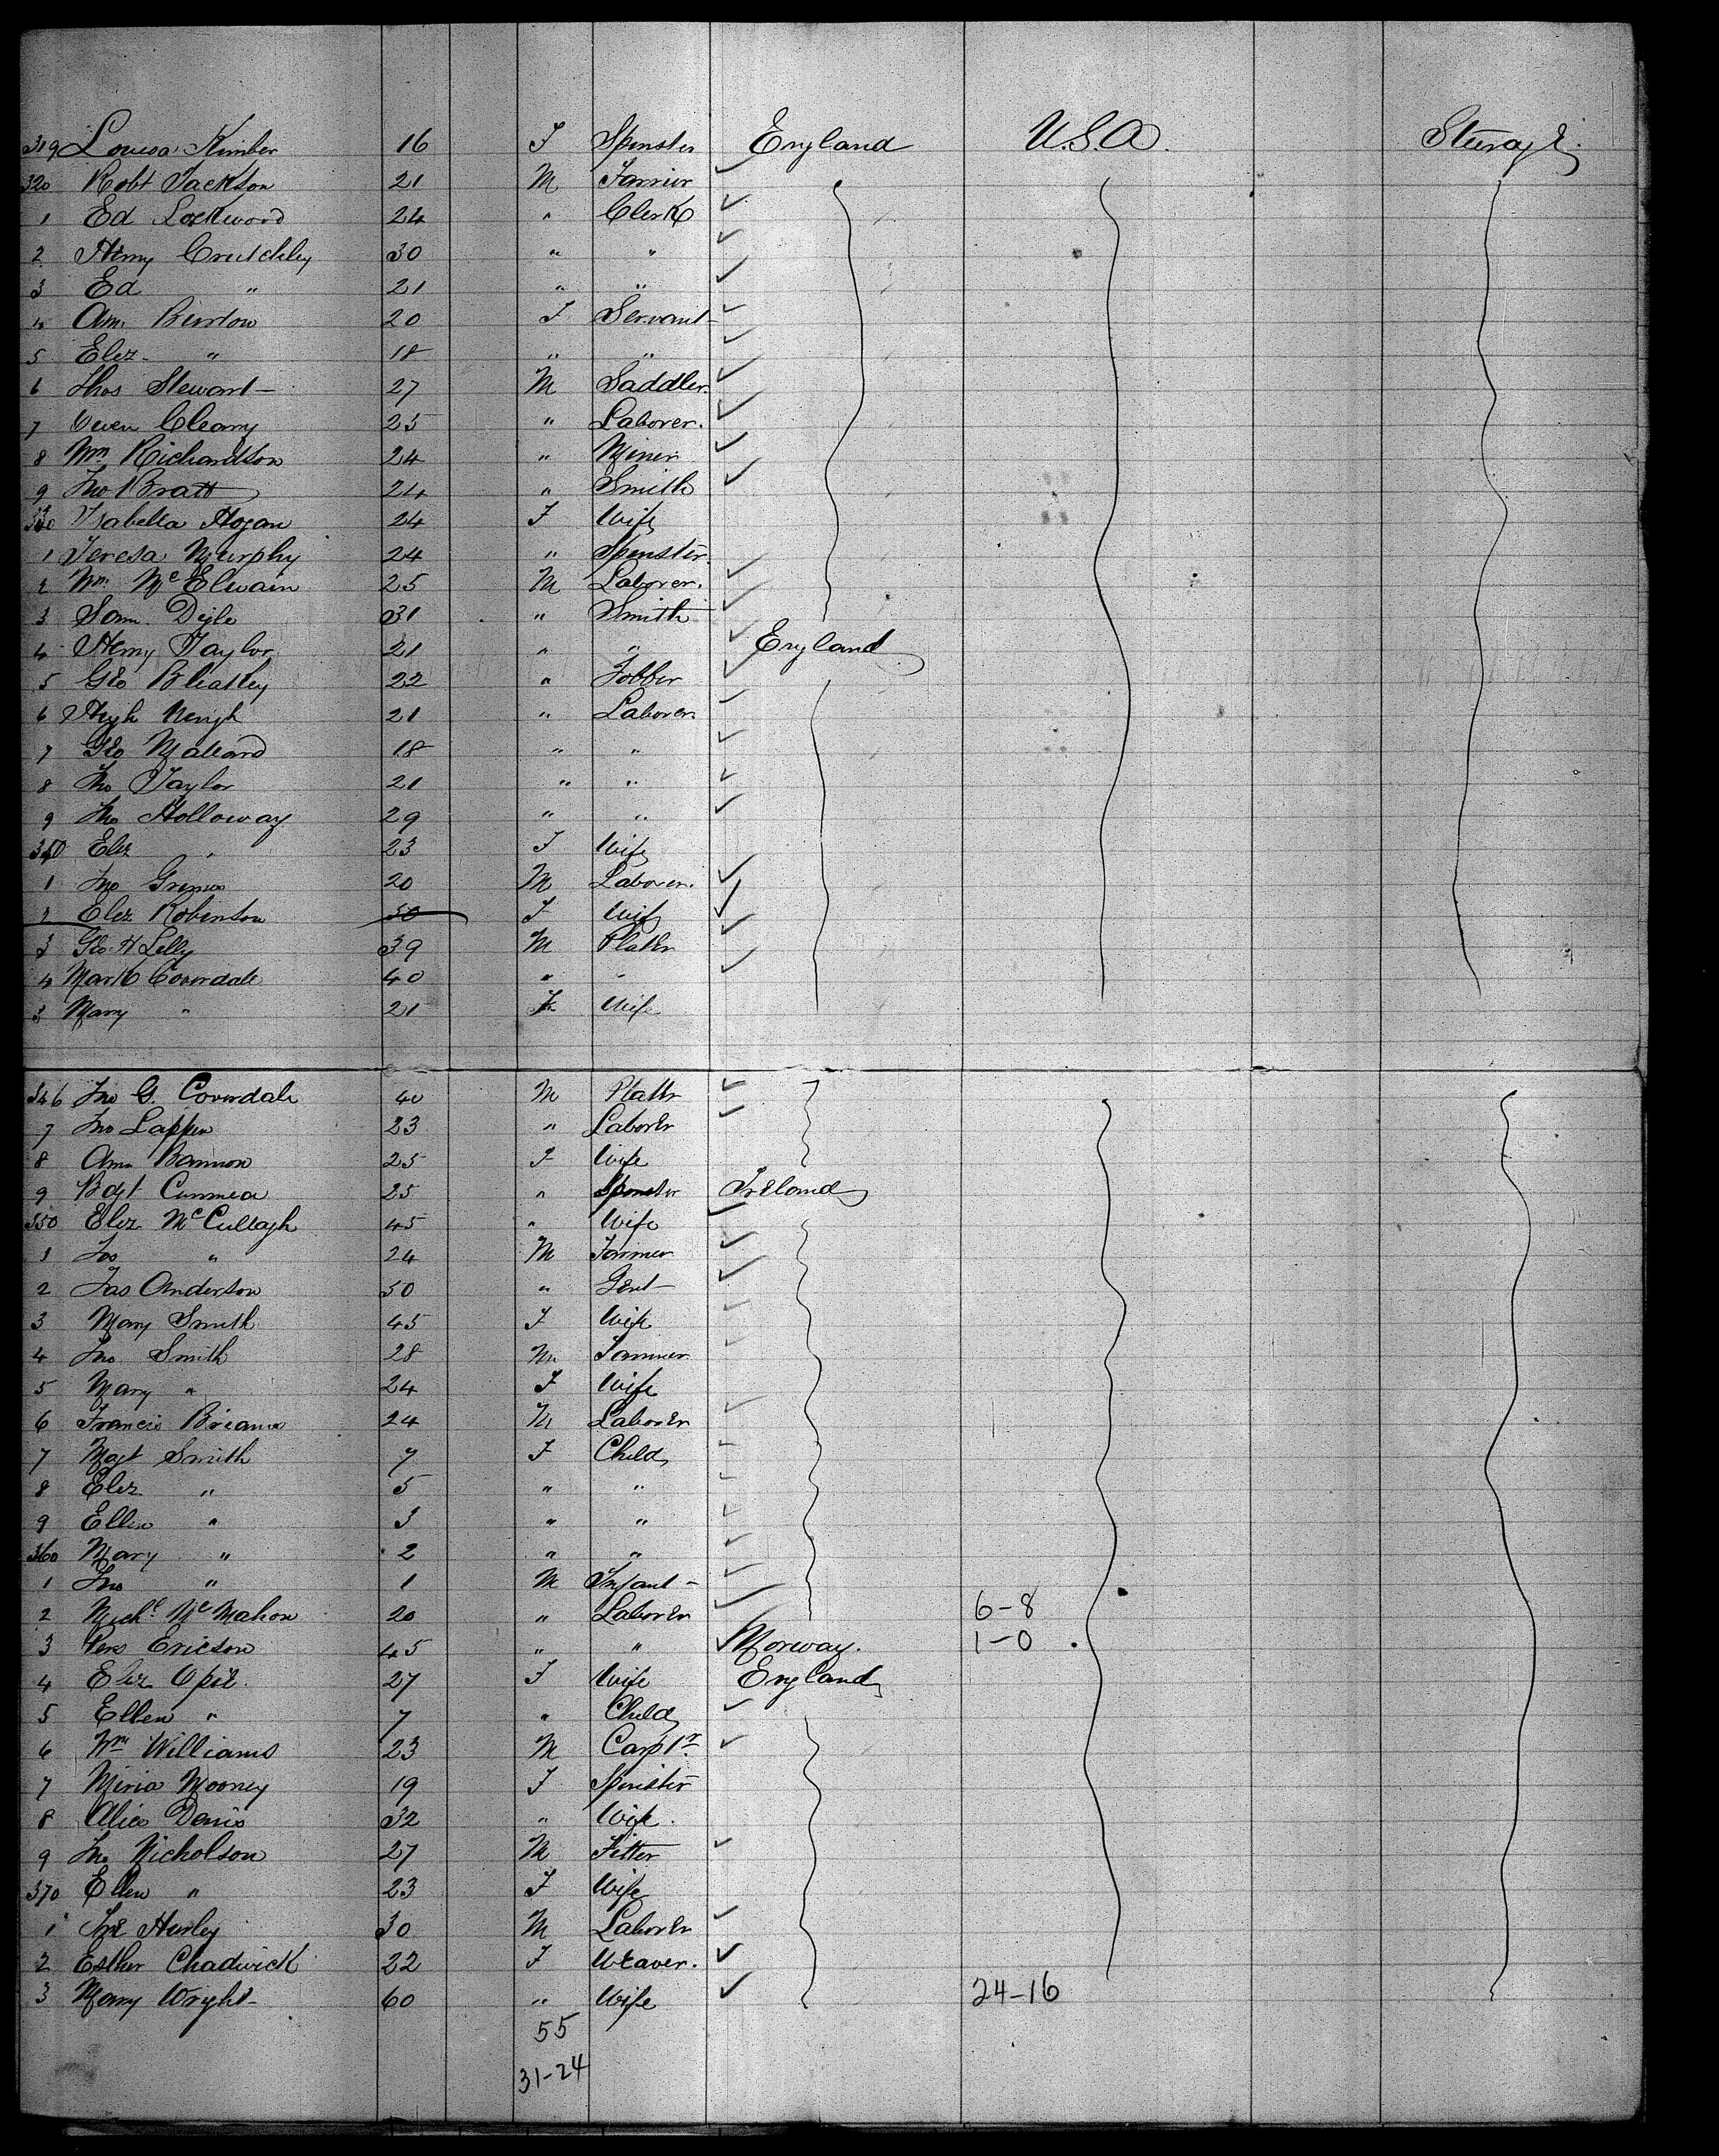 319 Louisa Kimber 16 F Spinster England U.S.A. Steerage
320 Robt Jackson 21 M Farrier
1 Ed Lockwood 24 " Clerk
2 Henry Crutchley 30 " "
3 Ed " 21 " "
4 Ann Burton 20 F Servant
5 Eliz " 18 " "
6 Thos Stewart 27 M Saddler
7 Owen Cleary 25 " Laborer.
8 Wm Richardson 24 " Miner
9 Jno Bratt 24 " Smith
330 Isabella Hogan 24 F Wife
1 Teresa Murphy 24 " Spinster
2 Wm McElwain 25 M Laborer.
3 Sam. 31 " Smith
4 Henry Taylor 21 " " England
5 Geo Bleakley 22 " Jobber
6 Hugh 21 " Laborer
7 Geo Mallard 18 " "
8 Jno Taylor 21 " "
9 Jno Holloway 29 " "
340 Eliz " 23 F Wife
1 Jno Grimes 20 M Laborer.
2 Eliz Robinson 50 F Wife
3 Geo H Lelly 39 M Plater
4 Mark Coverdale 40 " "
5 Mary " 21 F Wife
346 Jno G. Coverdale 40 M Plater
7 Jno Lappin 23 " Laborer
8 Ann Bannon 25 F Wife
9 Bdgt 25 " Spinster Ireland
350 Eliz McCullagh 45 " Wife
1 Jos " 24 M Farmer
2 Jas Anderson 50 " Gent
3 Mary Smith 45 F Wife
4 Jno Smith 28 M Farmer
5 Mary " 24 F Wife
6 Francis 24 M Laborer
7 Magt Smith 7 F Child
8 Eliz " 5 " "
9 Ellen " 3 " "
360 Mary " 2 " "
1 Jno " 1 M Infant
2 Michl McMahon 20 " Laborer 6-8
3 Ericson 45 " " Norway. 1-0
4 Eliz 27 F Wife England
5 Ellen " 7 " Child
6 Wm Williams 23 M Carptr
7 Miria Mooney 19 F Spinster
8 Alice Davis 32 " Wife.
9 Jno Nicholson 27 M Fitter
370 Ellen " 23 F Wife
1 Hurley 30 M Laborer
2 Esther Chadwick 22 F Weaver.
3 Mary Wright 60 " Wife 24-16
55
31-24